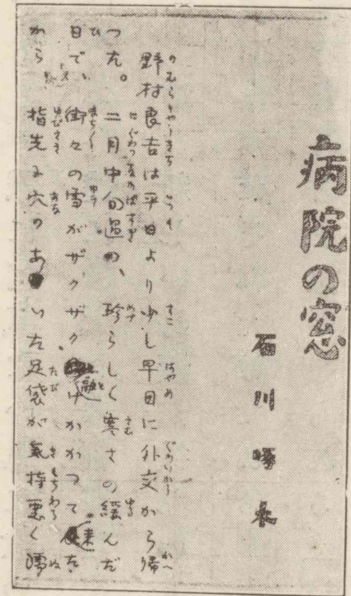 病院の窓
石川啄木
野村良吉は平日より少し早目に外交から帰
つた。二月中旬過の、珍らしく寒さの緩んだ
日で、街々の雪がザクザク融けかかつて来た
から、指先に穴のあいた足袋が気持悪く濡